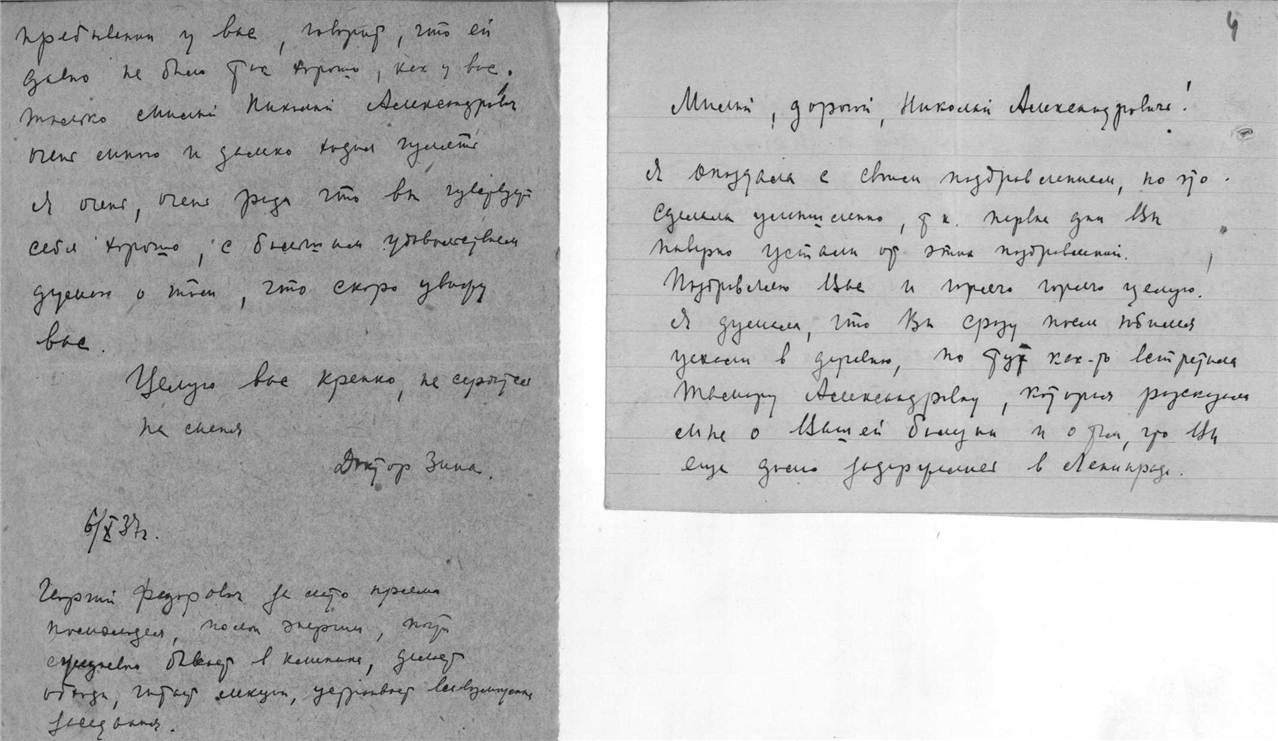 пребывании у вас, говорит, что ей
давно не было так хорошо, как у вас.
только милый Николай Александрович
очень много и далеко ходил гулять
Я очень, очень рада что вы чувствуете
себя хорошо, с большим удовольствием
думаю о том, что скоро увижу
вас.
Целую вас крепко, не сердитесь
на меня
Доктор Зина.
6/X 37г.
Георгий Федорович за лето прямо
помолодел, полон энергии, почти
ежедневно бывает в клинике, делает
обходы, читает лекции, устраивает всевозможные
заседания.
4
Милый, дорогой, Николай Александрович!
Я опоздала с своим поздравлением, но это
сделала умышленно, т.к. первые дни Вы
наверно устали от этих поздравлений.
Поздравляю Вас и горячо горячо целую.
Я думала, что Вы сразу после юбилея
уехали в деревню, но тут как-то встретила
Тамару Александровну, которая рассказала
мне о Вашей болезни и о том, что Вы
еще долго задержитесь в Ленинграде.